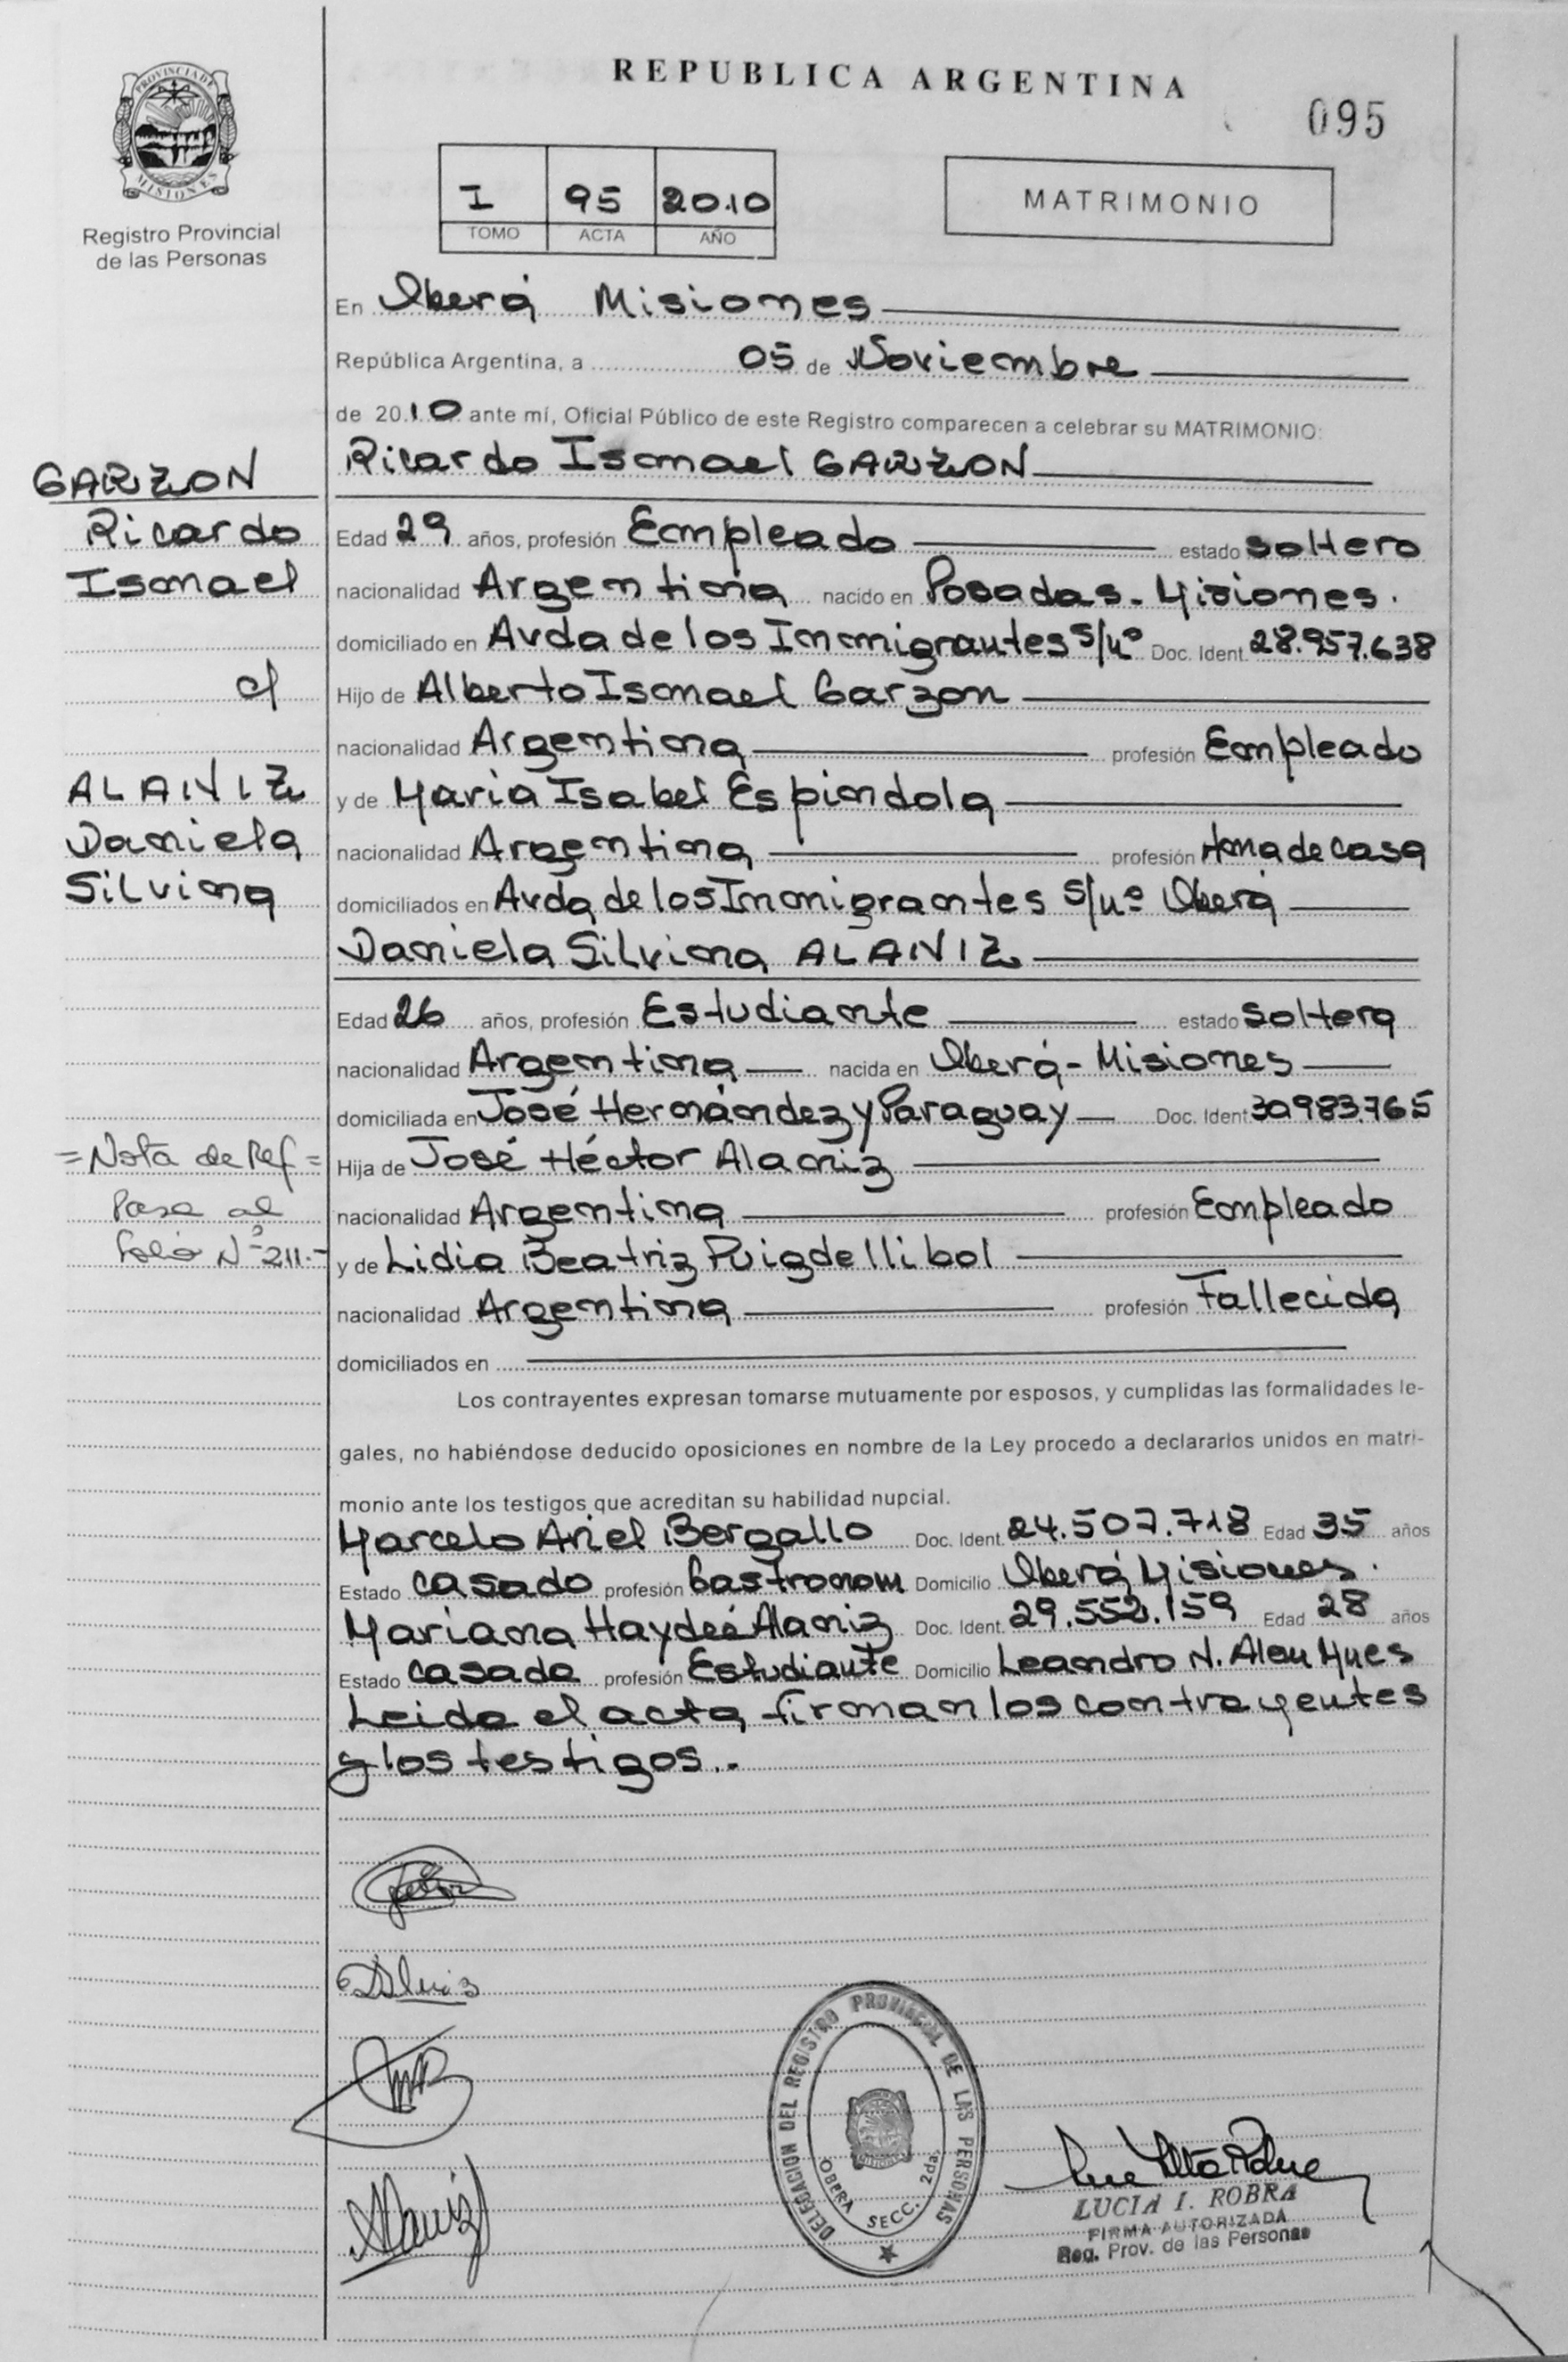 REPUBLICA ARGENTINA
095
PROVINCIA DE
MISIONES
Registro Provincial
de las Personas
I 95 2010
TOMO ACTA AÑO
MATRIMONIO
En Oberá Misiones
República Argentina, a 05 de Noviembre
de 2010 ante mí, Oficial Público de este Registro comparecen a celebrar su MATRIMONIO:
Ricardo Ismael GARZON
Edad 29 años, profesión Empleado estado soltero
nacionalidad Argentina nacido en Posadas - Misiones.
domiciliado en Avda de los Inmigrantes s/nº Doc. Ident. 28.957.638
Hijo de Alberto Ismael Garzon
nacionalidad Argentina profesión Empleado
y de Maria Isabel Espindola
nacionalidad Argentina profesión Ama de casa
domiciliados en Avda de los Inmigrantes s/nº Oberá
Daniela Silvina ALANIZ
Edad 26 años, profesión Estudiante estado soltera
nacionalidad Argentina nacida en Oberá - Misiones
domiciliada en José Hernández y Paraguay Doc. Ident. 30983.765
Hija de José Héctor Alaniz
nacionalidad Argentina profesión Empleado
y de Lidia Beatriz Puigdellibol
nacionalidad Argentina profesión Fallecida
domiciliados en
Los contrayentes expresan tomarse mutuamente por esposos, y cumplidas las formalidades le-
gales, no habiéndose deducido oposiciones en nombre de la Ley procedo a declararlos unidos en matri-
monio ante los testigos que acreditan su habilidad nupcial.
Marcelo Ariel Bergallo Doc. Ident. 24.507.718 Edad 35 años
Estado casado profesión Gastronom Domicilio Oberá Misiones.
Mariana Haydeé Alaniz Doc. Ident. 29.552.159 Edad 28 años
Estado casada profesión Estudiante Domicilio Leandro N. Alem Mnes
Leida el acta firman los contrayentes
y los testigos..
GARZON
Ricardo
Ismael
c/
ALANIZ
Daniela
Silvina
=Nota de Ref=
Pasa al
Folio Nº 211.-
Alaniz
DELEGACION DEL REGISTRO PROVINCIAL DE LAS PERSONAS
OBERA SECC. 2da.
LUCIA I. ROBRA
FIRMA AUTORIZADA
Reg. Prov. de las Personas